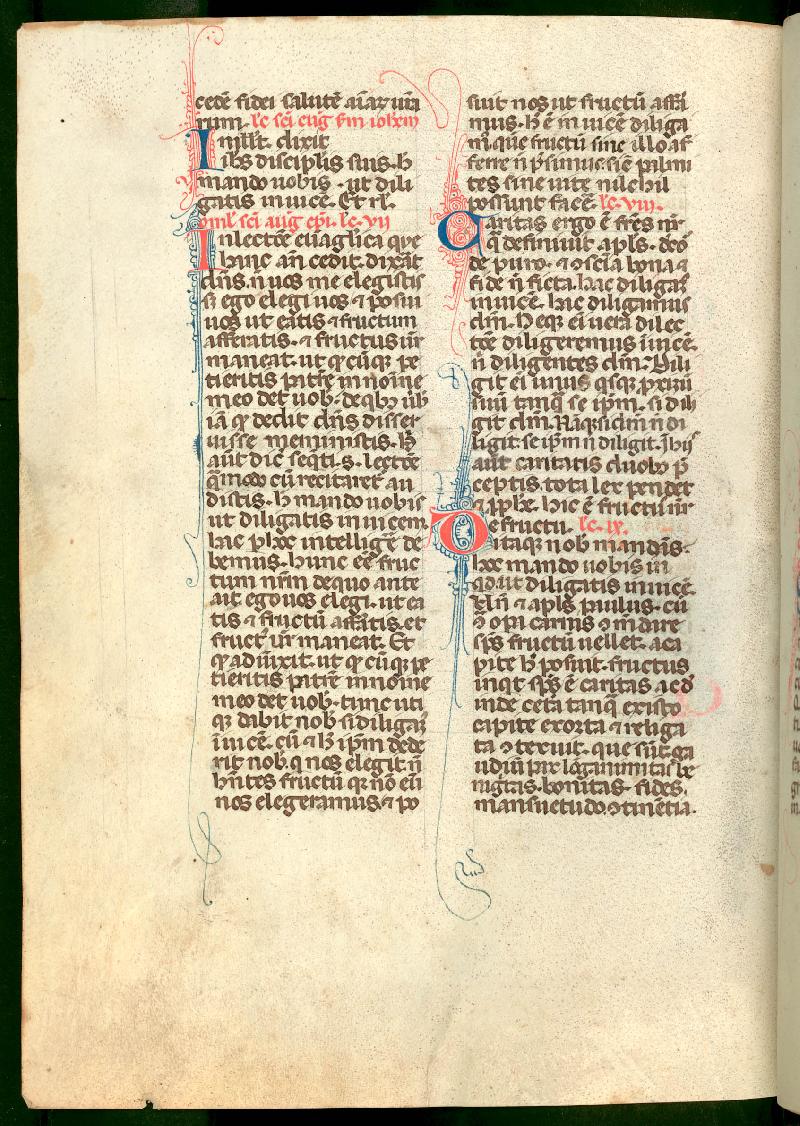 cedē fidei salutē aīaꝝ uīa
rum. lc̄ sci eug km iohem
In illt. dixit
ihs discip̄lis suis. h̄
mando uobis . ut dili
gatis inuicē. Et rl̄.
omł sci aug ep̄i. lc. vii
In lectōe euāglica que
hanc an̄ cedit. dixāt
dn̄s. n̄ uos me elegistis
si ego elegi uos & posui
uos ut eatis & fructum
afferatis. & fructus ur̄
maneat. ut qͥcūqꝫ pe
tieritis patrē in noīne
meo det uob. deqbꝫ ūb
iā qͥ dedit dn̄s disser
uisse meministis. h̄
aūt dic̄ seqn̄ti. s. lectōe
q̄modo cū recitaret au
distis. h̄ mando uobis
ut diligatis inuicem
hāc ꝑhoc intelligē de
bemus. hunc eē fruc
tum nr̄m dequo ante
ait ego uos elegi. ut ea
tis & fructū afferatis. et
fruct̄ ur̄ maneat. Et
qͥ adiūxit. ut qͥcūqꝫ pe
tieritis patrē in noīne
meo det uob. tunc uti
qꝫ dabit nob si diligaꝰ
īuicē. cū & h̄ ip̄m dede
rit nob. q nos elegit n̄
hn̄tes fructū qꝛ nō eū
nos elegeramus. & po
suit nos ut fructū affe
mus. h̄ ē inuicē diliga
mꝰ. que fructū sine illo af
ferre n̄ possimus. sic palmi
tes sine uite nichil
possunt facē. lc. viii.
Caritas ergo ē fr̄es nr̄
q̄ definiuit ap̄ls. de cor
de puro. & ꝯsciā bona &
fide n̄ ficta. hac diligaꝰ
inuicē. hac diligimus
dm̄. Neqꝫ ei uera dilec
tōe diligeremus īuicē.
n̄ diligentes dm̄. Dili
git ei unus qsqꝫ ꝓximū
suū tanqͣ se ip̄m. si dili
git dm̄. Nāqꝫ si dm̄ n̄ di
ligit. se ip̄m n̄ diligit. In his
aūt caritatis duobꝫ p̄
ceptis. tota lex pendet
& ꝓphe. hic ē fructꝰ nr̄
De fructu. lc. ix.
itaqꝫ nob mandans.
hoc mando uobis in
qd. ut diligatis inuicē.
Vn̄ & ap̄ls paulus. cū
ꝯ opa carnis ꝯmdare
sp̄s fructū uellet. a ca
pite h̄ posuit. fructus
inqt sp̄s ē caritas. ac d
inde cetā tanqͣ existo
capite exorta & religa
ta ꝯteruit. que sūt ga
udiū pax lōganimitas be
nigtas. bonitas. fides.
mansuetudo. ꝯtinētia.